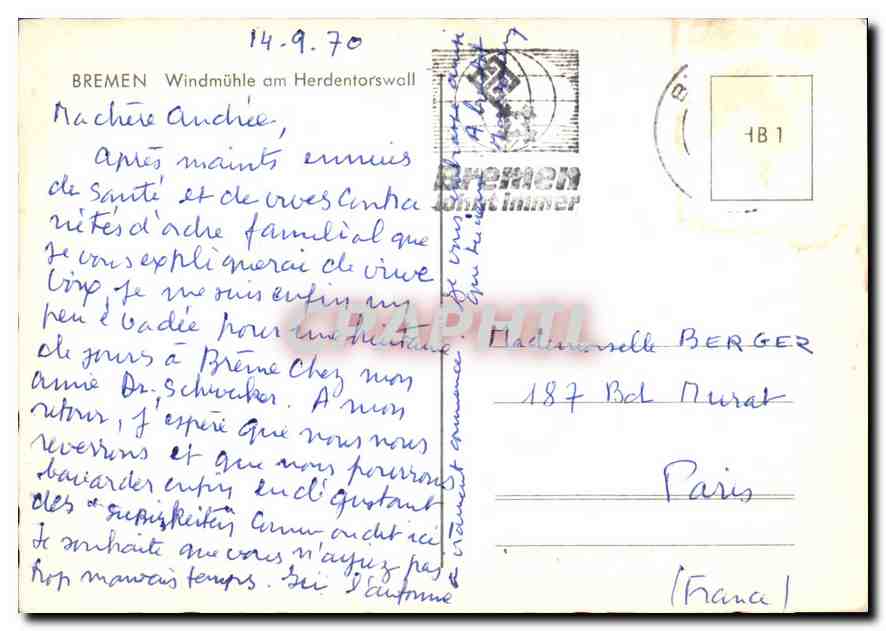 14.9.70
BREMEN Windmühle am Herdentorswall
Ma chère Andrée,
Après maints ennuis
de santé et de vives contra
riétés d'ordre familial que
je vous expliquerai de vive
voix, je me suis enfin un
peu évadée pour une huitaine
de jours à Brême chez mon
amie Dr. A mon
retour, j'espère que nous nous
reverrons et que nous pourrons
bavarder enfin en dégustant
des comme on dit ici
Je souhaite que vous n'ayiez pas
trop mauvais temps. Ici l'automne
vraiment commencé. Je vous embrasse ainsi
que
A bientôt
Bremen
lohnt immer
HB 1
Mademoiselle BERGER
187 Bd Murat
Paris
(France)
CPAPHIL